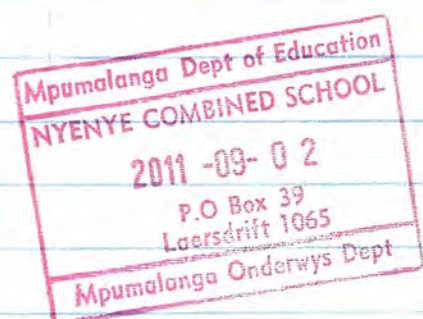 Mpumalanga Dept of Education
NYENYE COMBINED SCHOOL
2011 -09- 0 2
P.O Box 39
Laersdrift 1065
Mpumalanga Onderwys Dept